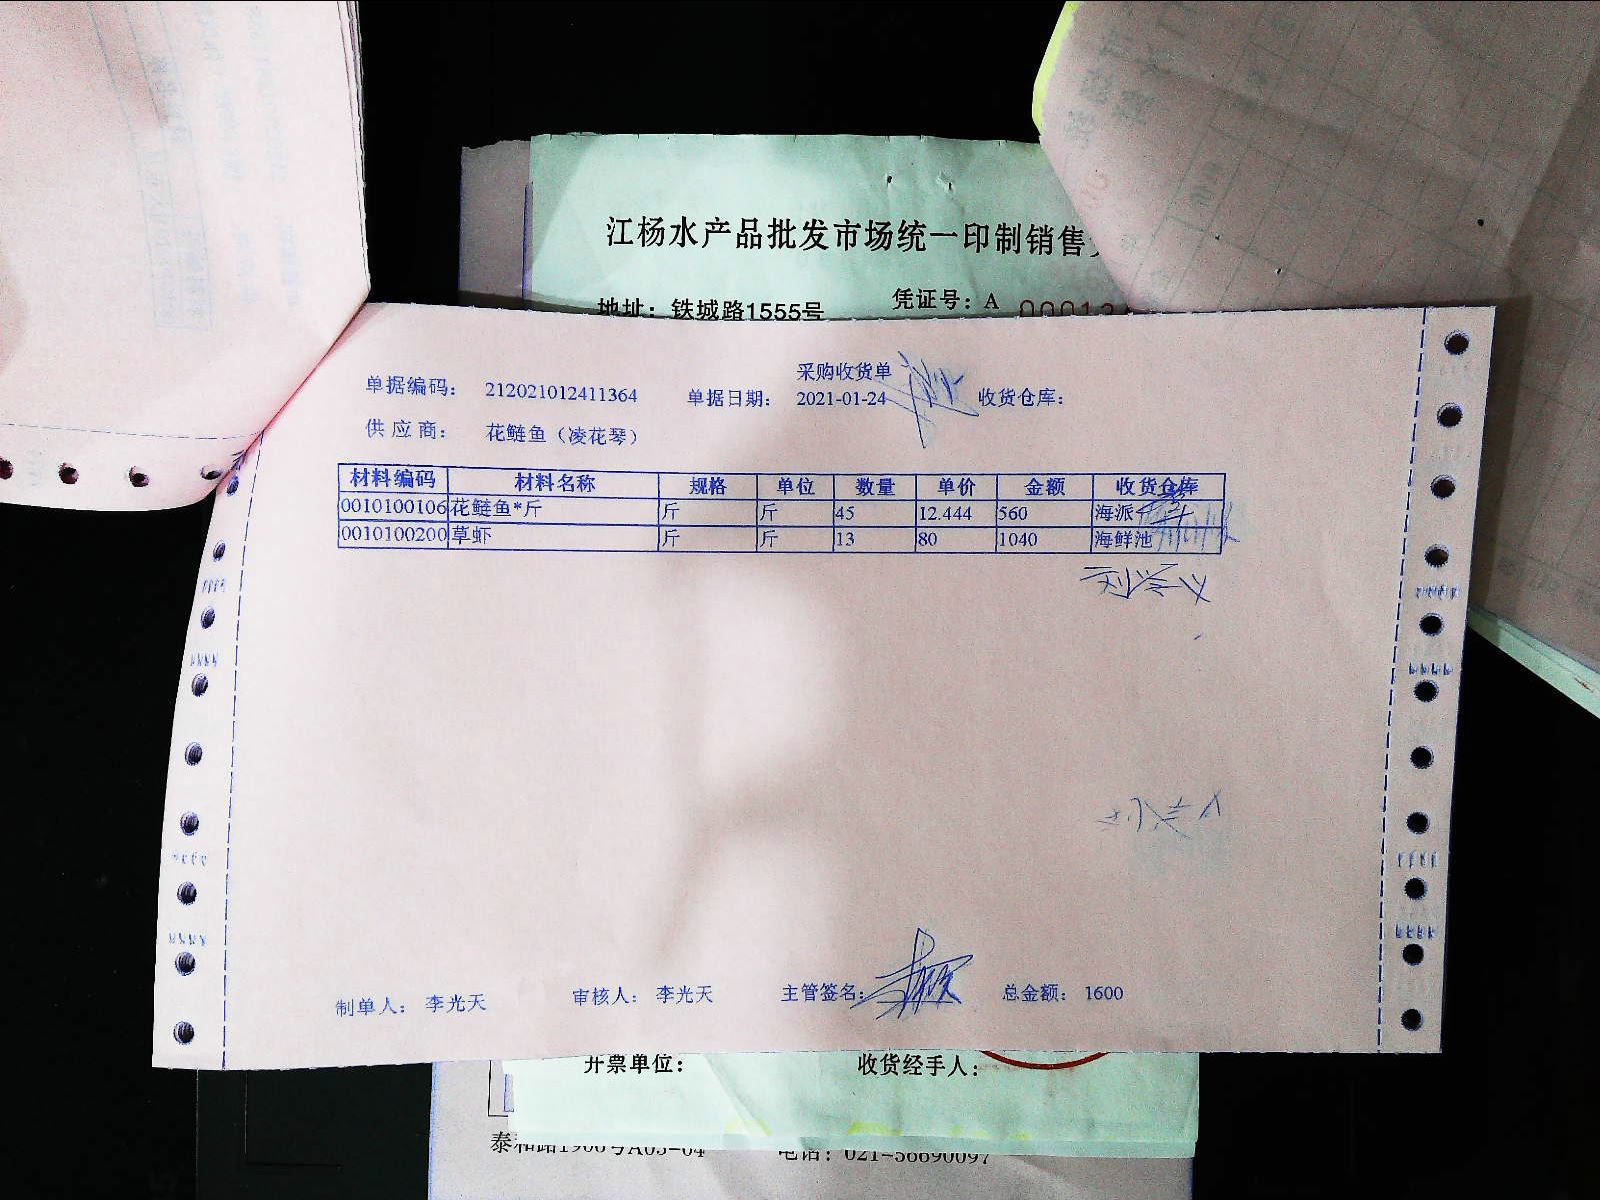 江杨水产品批发市场统一印制销售
地址：铁城路1555号 凭证号：A 00012
采购收货单
单据编码： 212021012411364 单据日期： 2021-01-24 收货仓库：
供应商： 花鲢鱼（凌花琴）
材料编码 材料名称 规格 单位 数量 单价 金额 收货仓库
0010100106 花鲢鱼*斤 斤 斤 45 12.444 560 海派
0010100200 草虾 斤 斤 13 80 1040 海鲜池
制单人： 李光天 审核人： 李光天 主管签名： 总金额： 1600
开票单位： 收货经手人：
泰和路1906号A05-04 电话：021-56690097